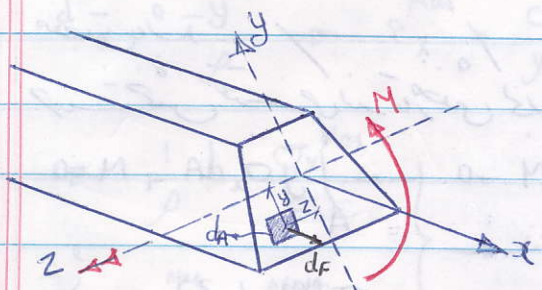 y
M
y
z
dA
dF
x
Z